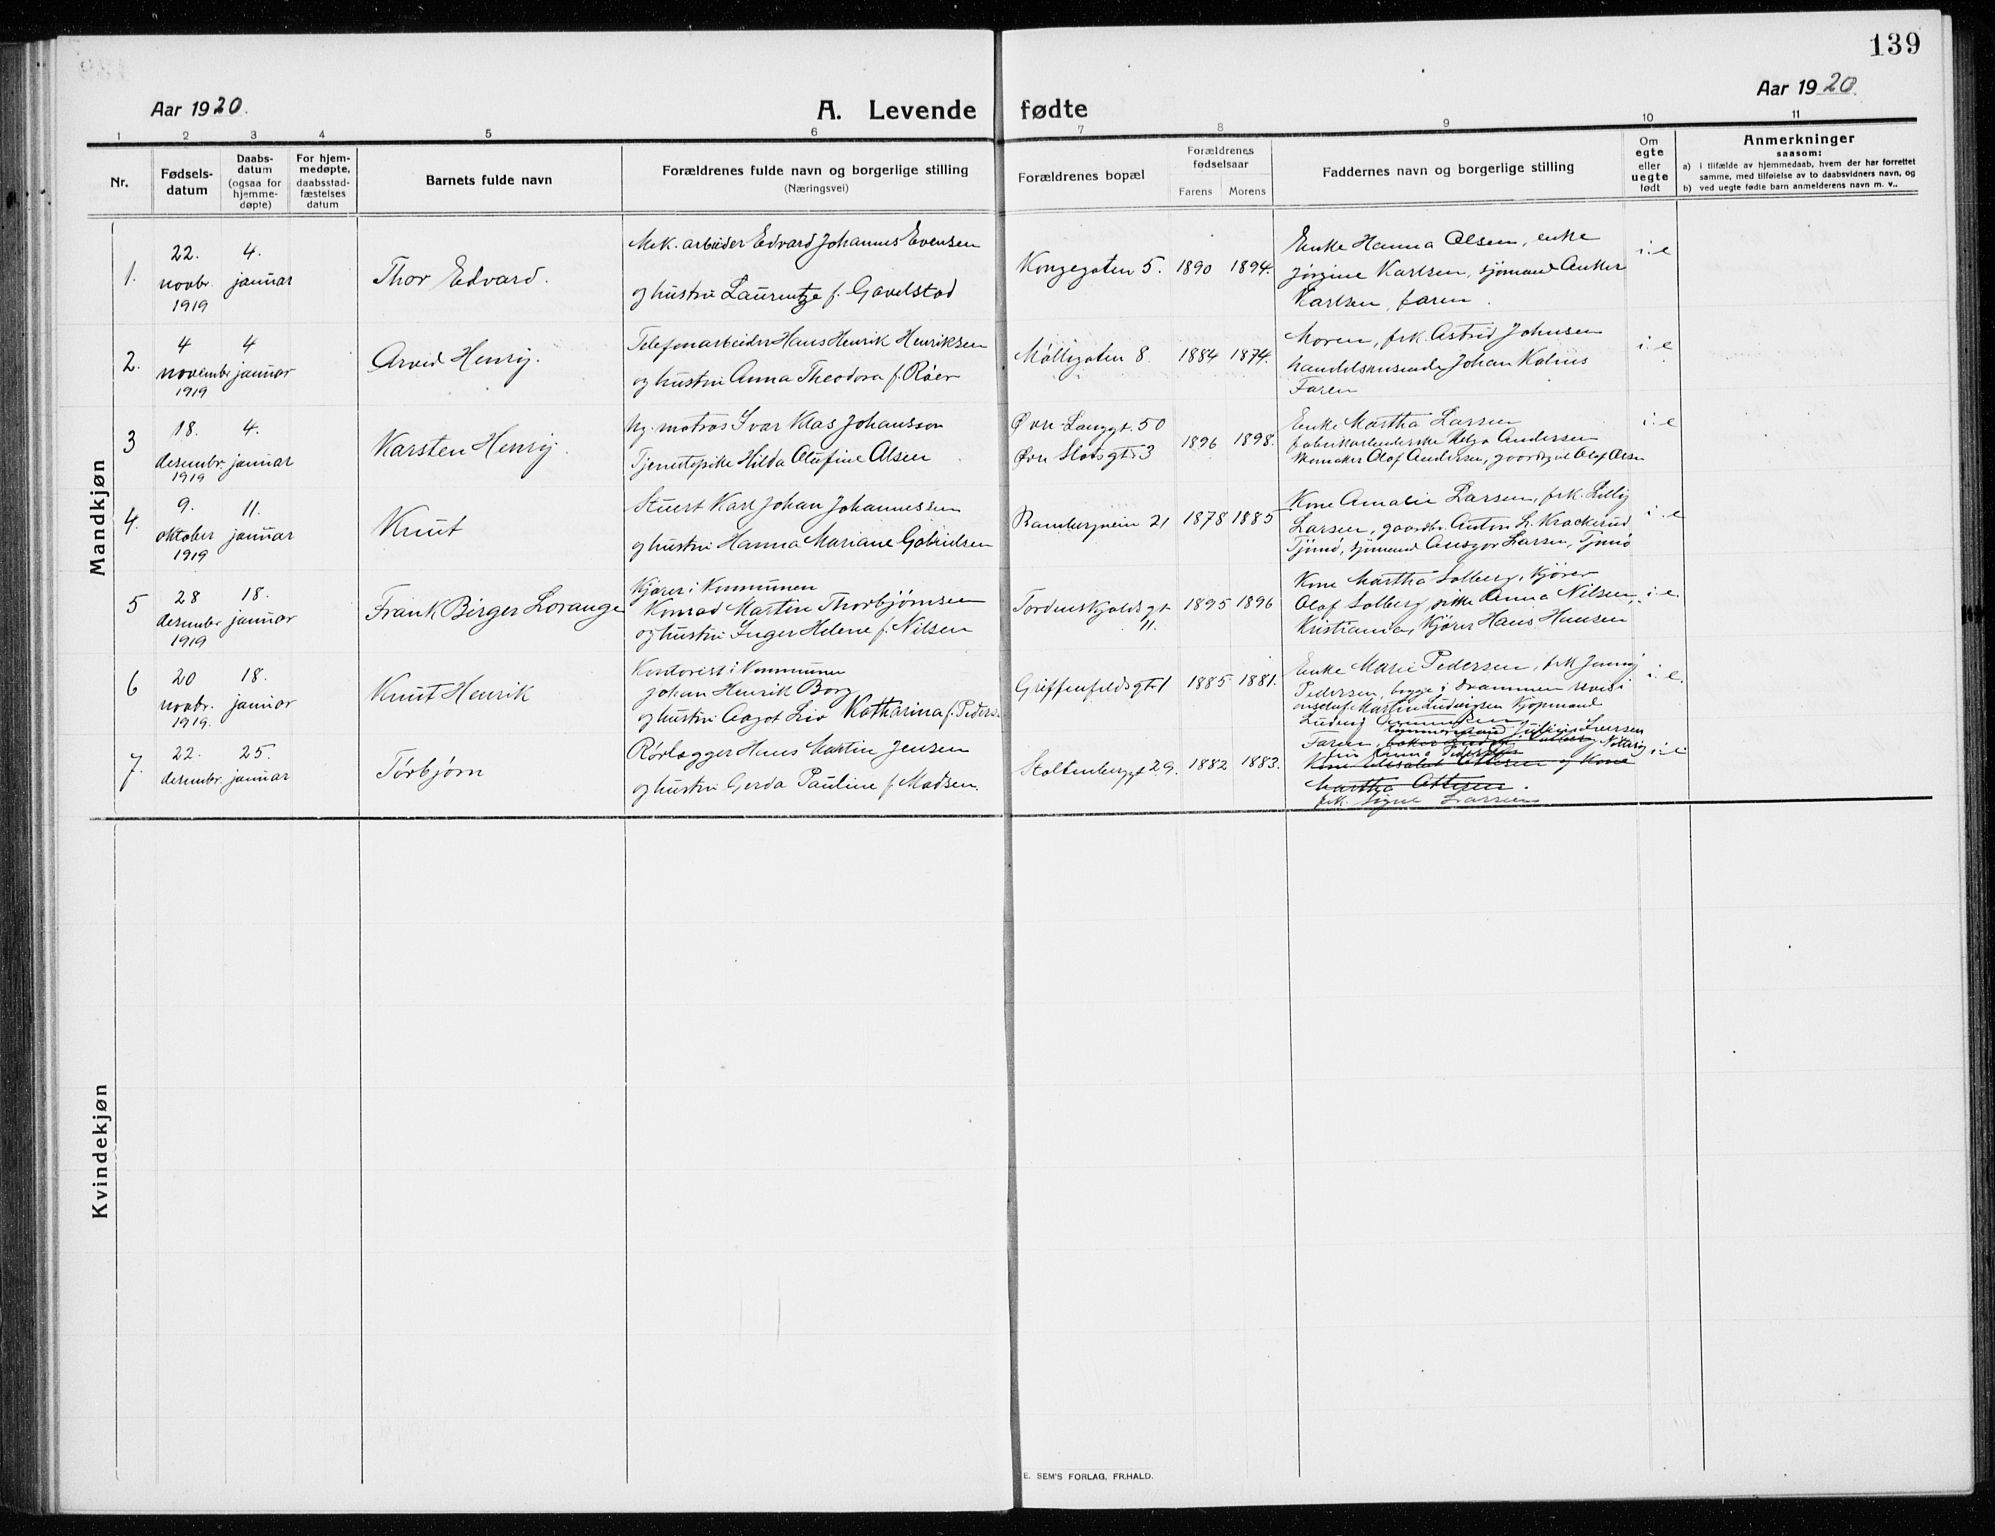 139
Aar 1920.
A. Levende fødte
Aar 1920.
1 2 3 4 5 6 7 8 9 10 11
Nr.
Fødsels-
datum
Daabs-
datum
(ogsaa for
hjemme-
døpte)
For hjem-
medøpte,
daabsstad-
fæstelses
datum
Barnets fulde navn
Forældrenes fulde navn og borgerlige stilling
(Næringsvei)
Forældrenes bopæl
Forældrenes
fødselsaar
Farens Morens
Faddernes navn og borgerlige stilling
Om
egte
eller
uegte
født
Anmerkninger
saasom:
a) i tilfælde av hjemmedaab, hvem der har forrettet
samme, med tilføielse av to daabsvidners navn, og
b) ved uegte fødte barn anmelderens navn m. v..
Mandkjøn
1.
22.
novbr.
1919
4.
januar
Thor Edvard.
Mek. arbeider Edvard Johannes Evensen
og hustru Laurentze f. Gavelstad
Kongegaten 5.
1890 1894.
Enke Hanna Olsen, enke
Jørgine Karlsen, sjømand Anker
Karlsen, faren.
i. e
2.
4
novembr
1919
4
januar
Arvid Henry.
Telefonarbeider Hans Henrik Henriksen
og hustru Anna Theodora f. Røer
Møllegaten 8.
1884 1874.
Moren, frk. Astrid Johnsen
handelsreisende Johan Kalius
Faren
i. e
3
18.
desembr.
1919
4.
januar
Karsten Henry.
Ng. matros Ivar Klas Johansson
Tjenestepike Hilda Olufine Olsen
Øvre Langgt. 50
Øvre Slotsgt. 3
1896 1898.
Enke Martha Larsen
fabrikarbeiderske Helga Andersen
skomaker Olaf Andersen, gaardbr. Olaf Olsen
i. e
4.
9.
oktober
1919
11.
januar
Knut
Stuert Karl Johan Johannessen
og hustru Hanna Mariane Gabrielsen
Rambergveien 21
1878 1885
Kone Amalie Larsen, frk. Lilly
Larsen, gaardbr. Anton L. Krackerud
Tjømø, sjømand Ansgar Larsen, Tjømø
i. e
5
28
desembr
1919
18.
januar
Frank Birger Lorange
Kjører i Kommunen
Konrad Martin Thorbjørnsen
og hustru Inger Helene f. Nilsen
Tordenskjolds gt
11.
1895 1896
Kone Martha Solberg, Kjører
Olaf Solberg, pike Anna Nilsen,
Kristiania, Kjører Hans Hansen
i. e.
6
20
novbr.
1919.
18.
januar
Knut Henrik
Kontorist i Kommunen
Johan Henrik Borg
og hustru Aagot Liv Katharina f. Peders.
Griffenfeldsgt. 1
1885 1881.
Enke Marie Pedersen, frk Jenny
Pedersen, begge i Drammen
Martin Ludvigsen Kjøpmand
Ludvig
i. e.
7.
22.
desembr
1919
25.
januar
Torbjørn
Rørlægger Hans Martin Jensen
og hustru Gerda Pauline f. Madsen.
Stoltenberggt 29.
1882 1883.
Julius Iversen
Faren, Nøtterø
Anna Pedersen
Kone Elisabet Ottersen og Kone
Martha Ottesen.
frk. Signe Larsen
i. e
Kvindekjøn
E. SEM'S FORLAG, FR.HALD.